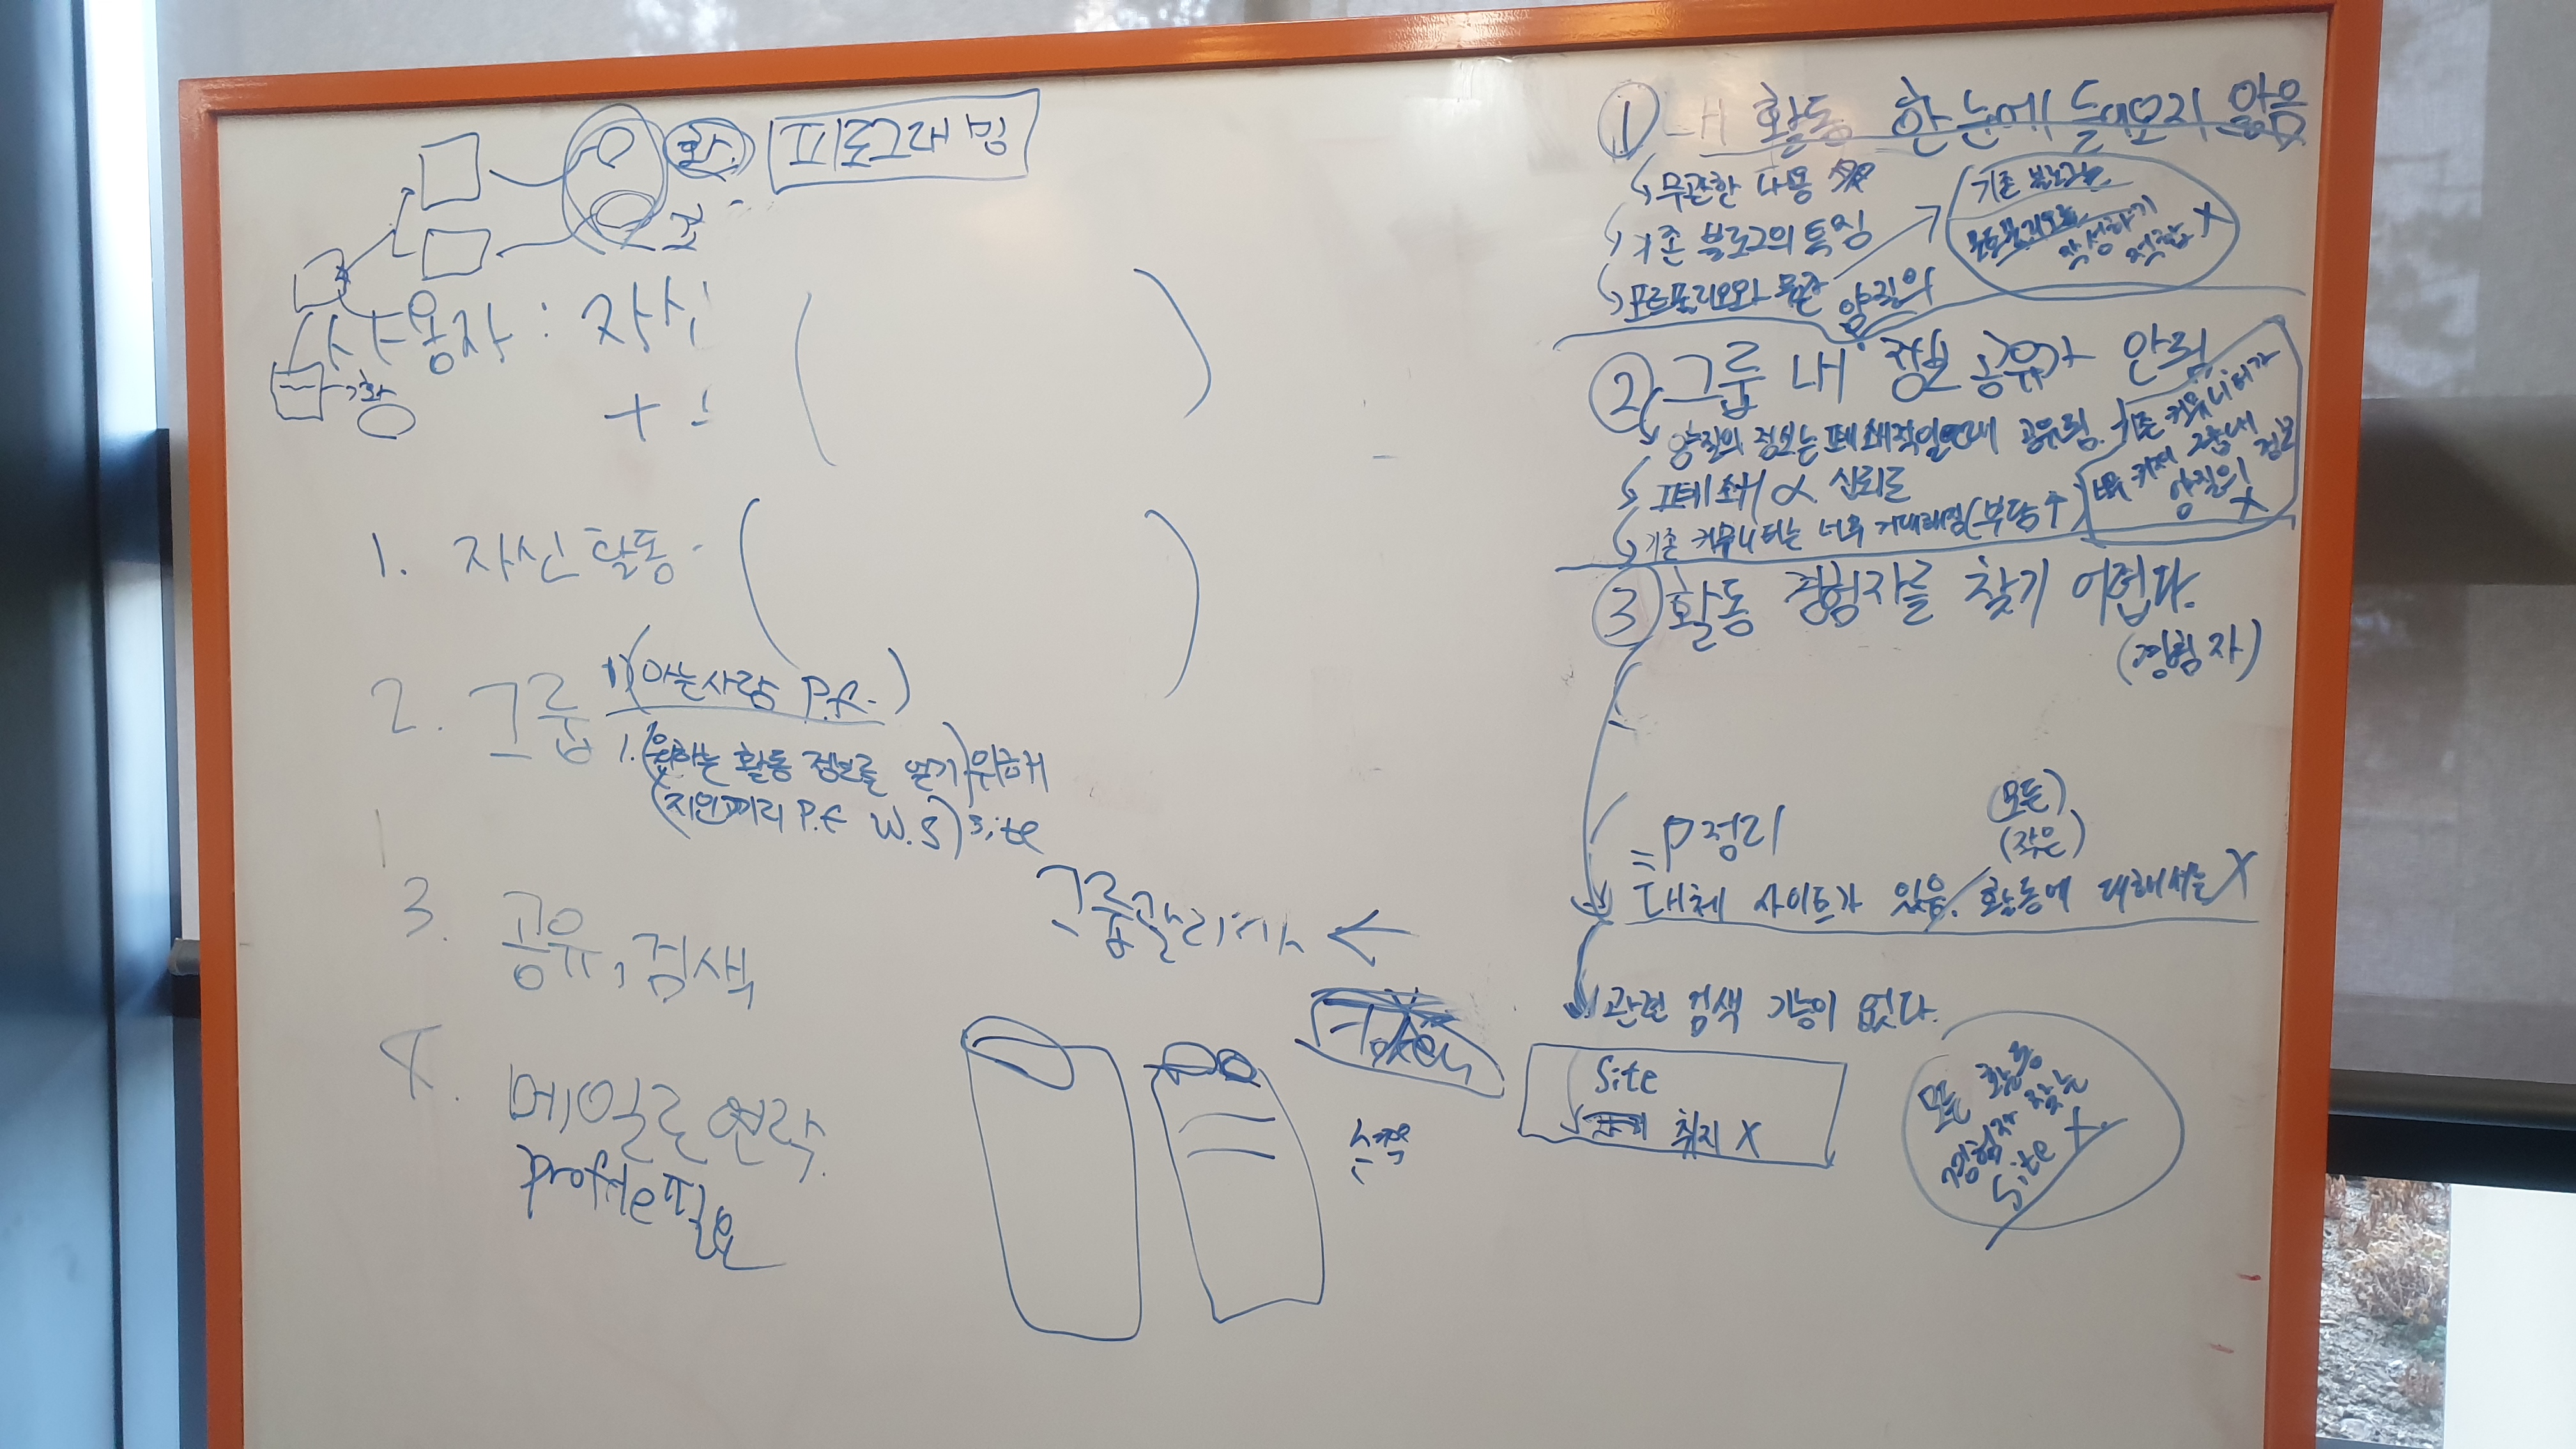 피로그래밍
사용자 : 자신
1. 자신 활동
2. 그룹
1) (아는사람 P.f.)
1. (원하는 활동 정보를 얻기) 위해
(지인끼리 P.f W.S) site
3. 공유, 검색
4. 메일로 연락
Profile
그룹관리
Token
① 내 활동 한 눈에 들어오지 않음
무관한 내용
기존 블로그의 특징
포트폴리오와 무관
기존 블로그는
작성하기 어렵다 X
양질의
② 그룹 내 정보 공유가 안됨
양질의 정보는 폐쇄적일때 공유됨.
폐쇄 ∝ 신뢰도
기존 커뮤니티는 너무 거대해짐 (부담↑)
기존 커뮤니티가
너무 커져 그룹내
양질의 정보 X
③ 활동 경험자를 찾기 어렵다.
(경험자)
=> 정리
(모든)
(작은)
대체 사이트가 있음. 활동에 대해서는 X
관련 검색 기능이 없다.
Site
취지 X
모든 활동
경험자 찾는
Site X